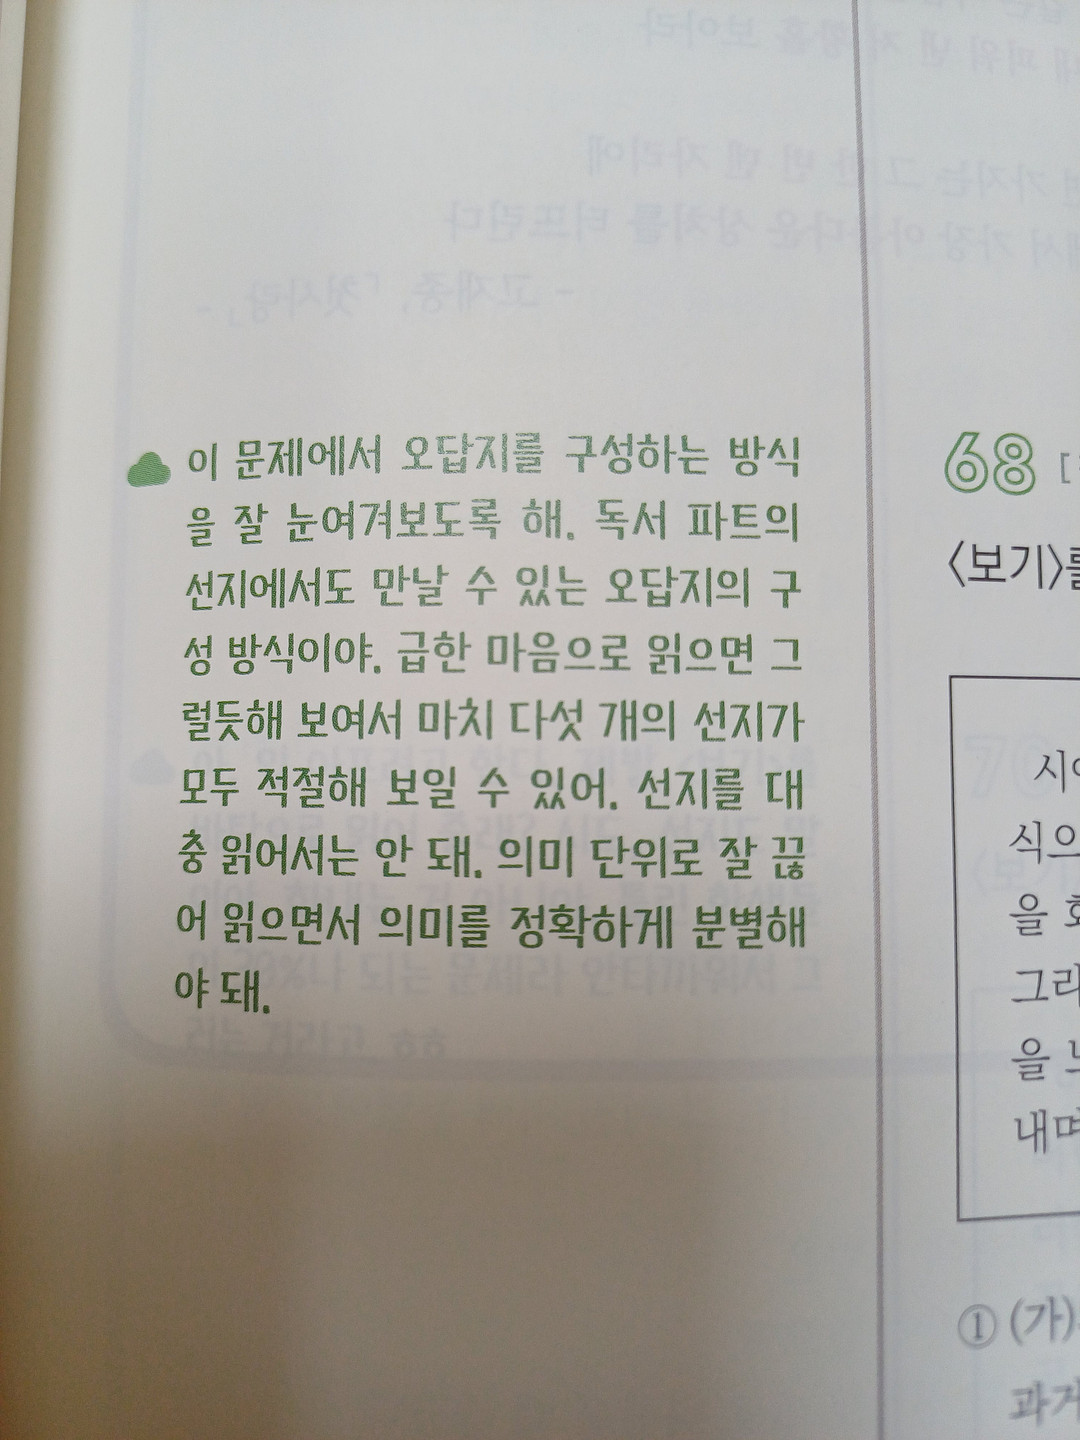 이 문제에서 오답지를 구성하는 방식
을 잘 눈여겨보도록 해. 독서 파트의
선지에서도 만날 수 있는 오답지의 구
성 방식이야. 급한 마음으로 읽으면 그
럴듯해 보여서 마치 다섯 개의 선지가
모두 적절해 보일 수 있어. 선지를 대
충 읽어서는 안 돼. 의미 단위로 잘 끊
어 읽으면서 의미를 정확하게 분별해
야 돼.
68 [
〈보기〉를
식으
을
그리
을
내며
① (가)